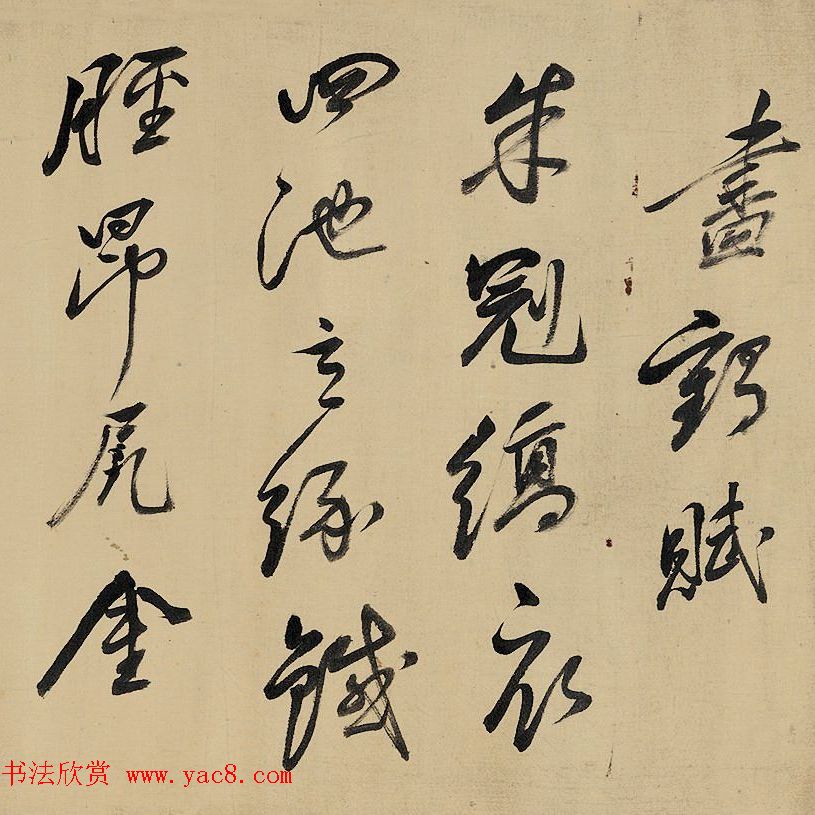 畫鶴賦
朱冠縞衣
四池玄緣鐵
脛昂尻金
书法欣赏 www.yac8.com